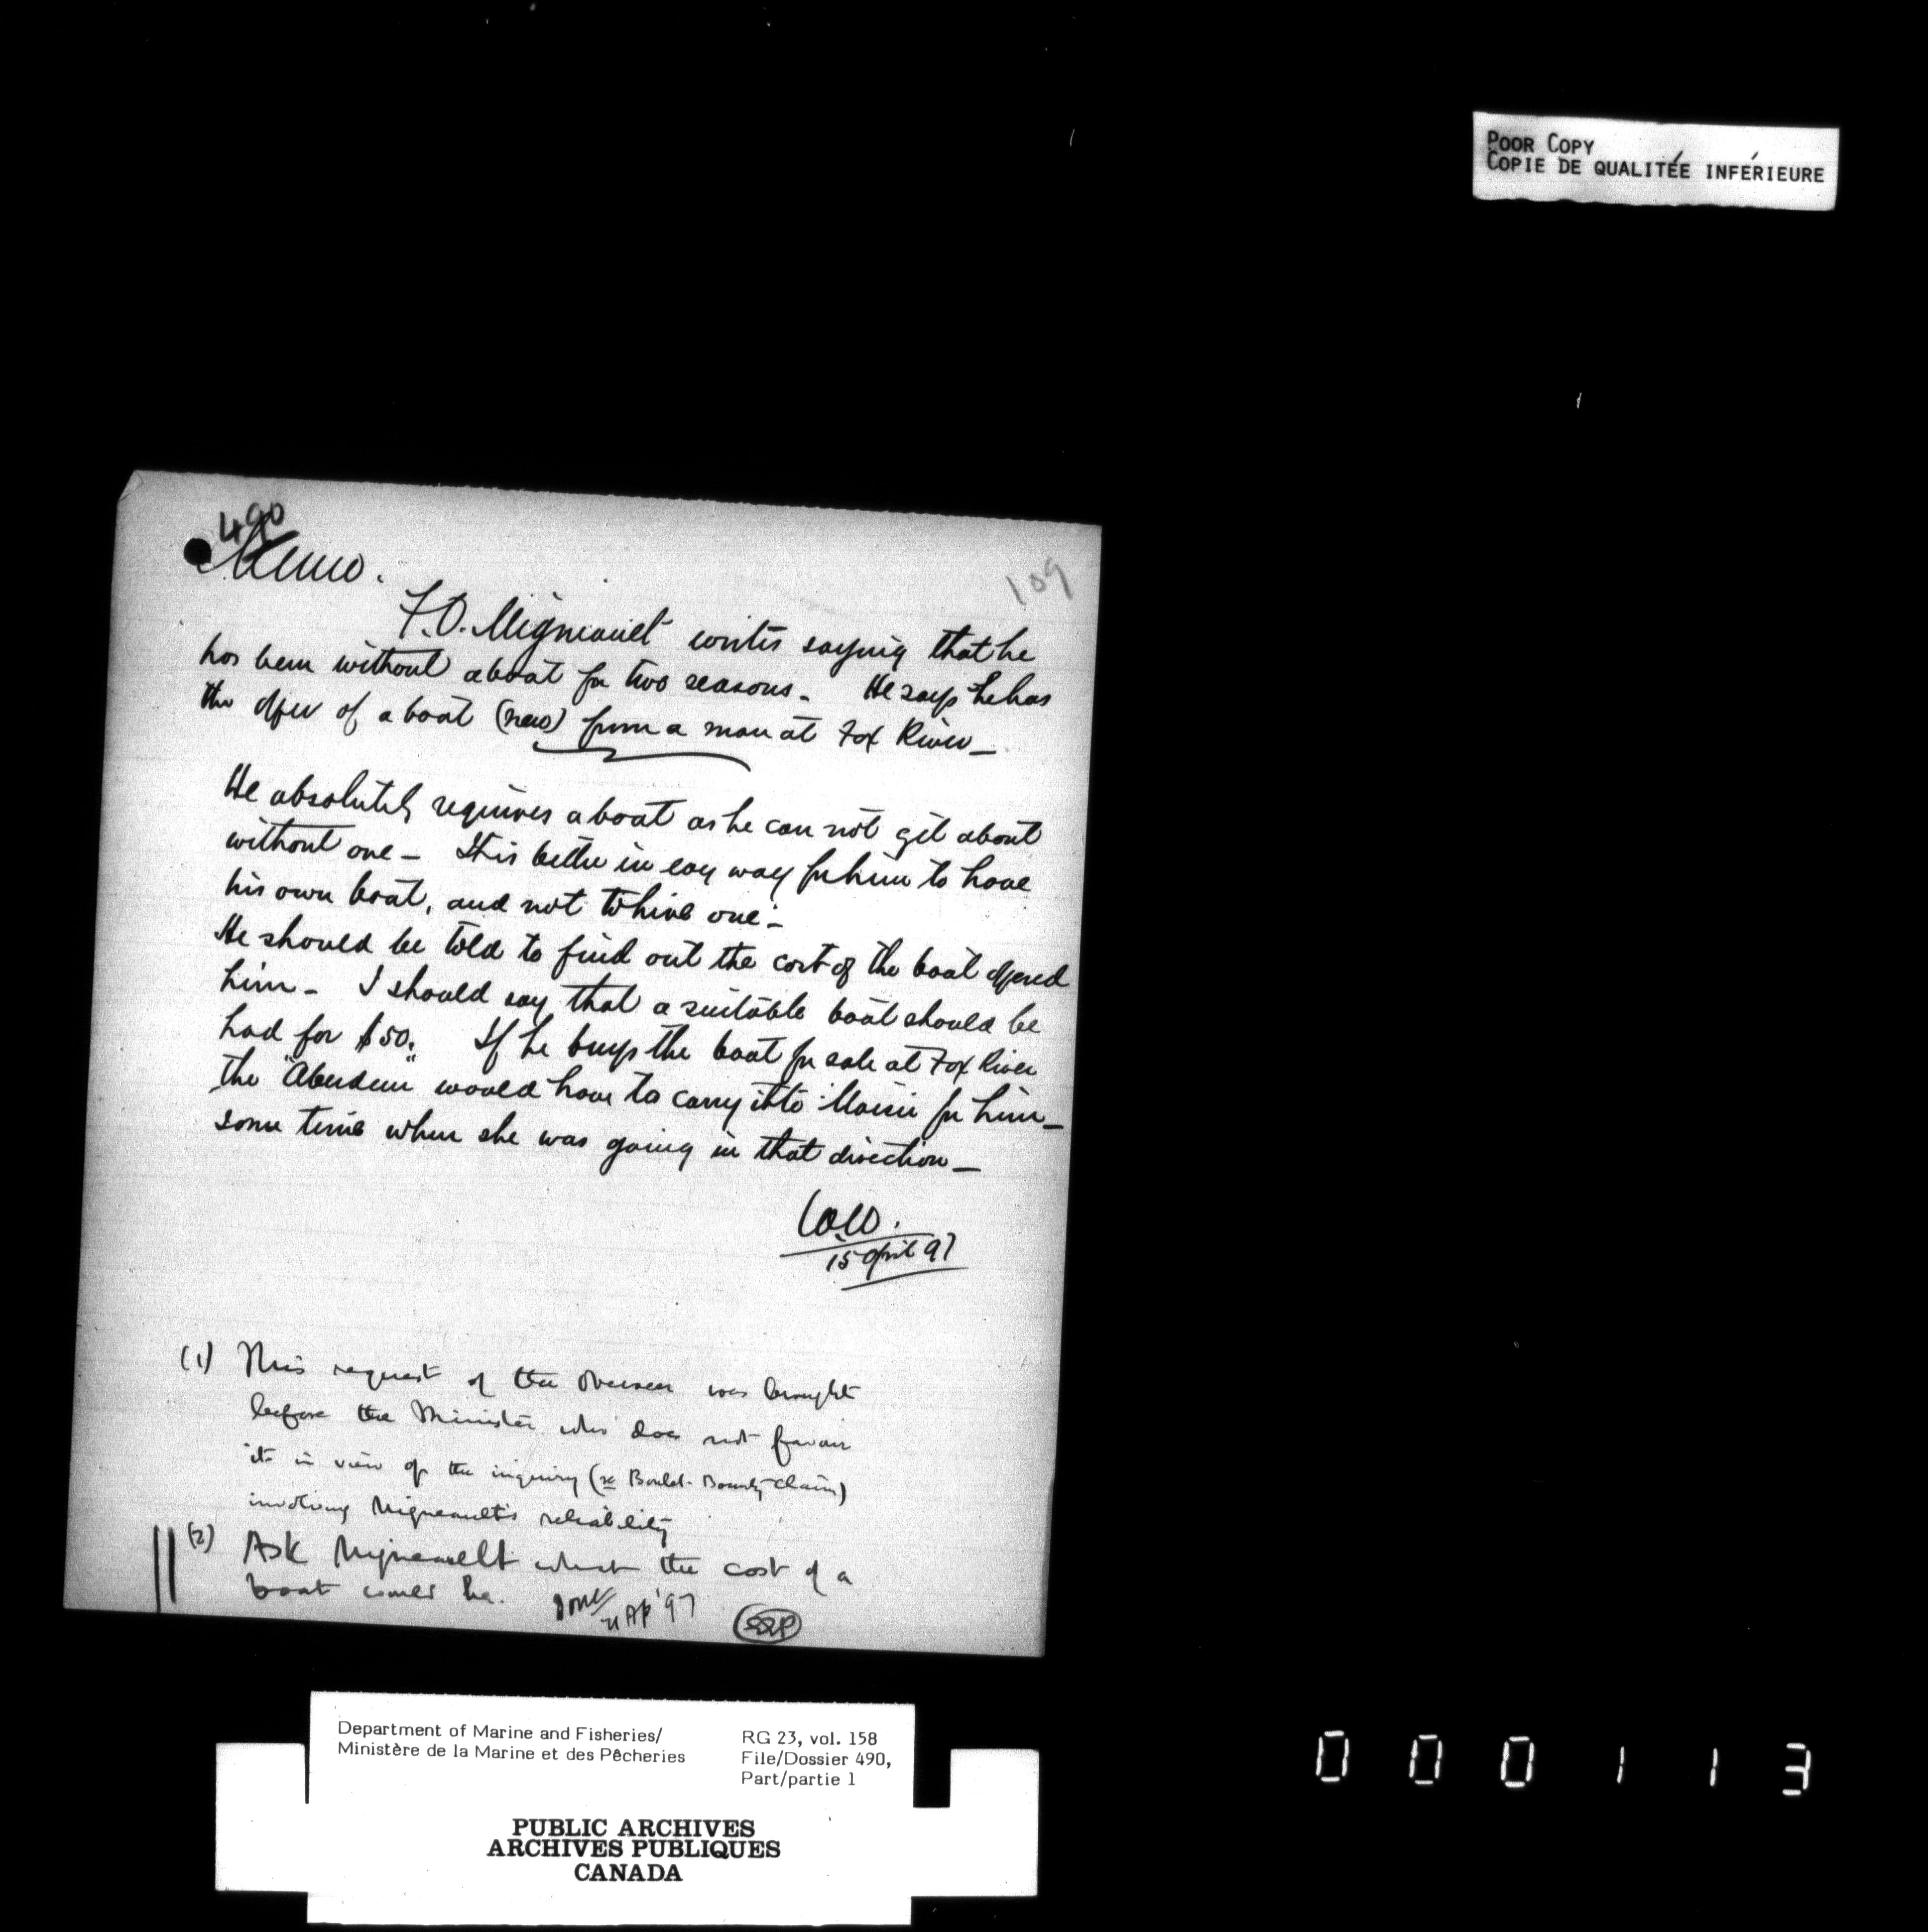 POOR COPY
COPIE DE QUALITÉE INFÉRIEURE
490
Memo.
109
F.O. Migneault writes saying that he
has been without a boat for two seasons. He says he has
the offer of a boat (new) from a man at Fox River_
He absolutely requires a boat as he can not get about
without one - It is better in every way for him to have
his own boat, and not to hire one -
He should be told to find out the cost of the boat offered
him - I should say that a suitable boat should be
had for $50. If he buys the boat for sale at Fox River
the "Aberdeen" would have to carry it to Moisie for him_
some time when she was going in that direction_
15 April 97
(1) This request of the Overseer was brought
before the Minister who does not favour
it in view of the inquiry (re Boulet-Bounty-Claim)
involving Migneault's reliability
(2) Ask Migneault what the cost of a
boat would be. Done
21 Ap '97
Department of Marine and Fisheries/
Ministère de la Marine et des Pêcheries
RG 23, vol. 158
File/Dossier 490,
Part/partie 1
PUBLIC ARCHIVES
ARCHIVES PUBLIQUES
CANADA
000113